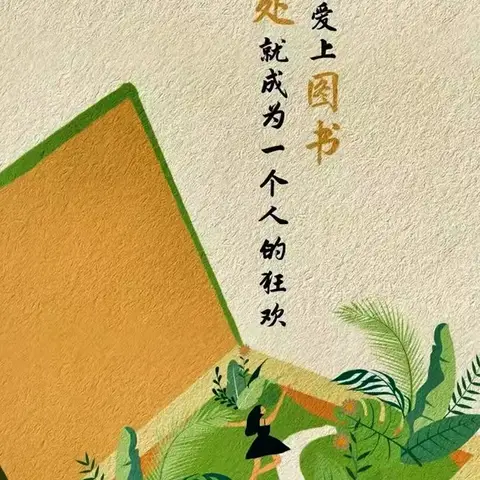 爱上图书
处就成为一个人的狂欢